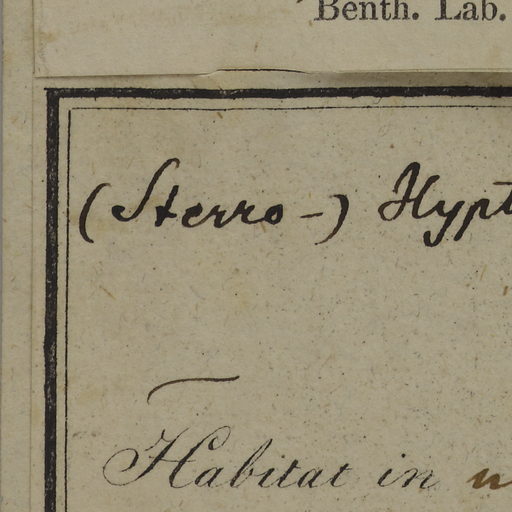 Benth. Lab.
(Sterro-) Hypt
Habitat in